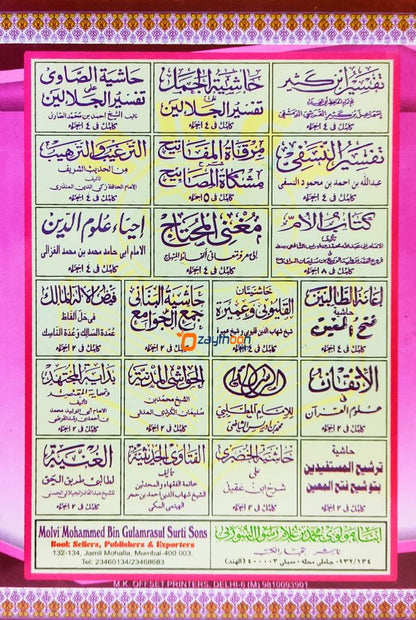 تفسير ابن كثير
للإمام الحافظ أبي الفداء
إسماعيل بن كثير القرشي الدمشقي
كامل في ٤ أجزاء
حاشية الجمل
على
تفسير الجلالين
كامل في ٤ أجزاء
حاشية الصاوى
على
تفسير الجلالين
تأليف الشيخ احمد بن محمد الصاوى
كامل في ٤ أجزاء
تفسير النسفى
عبدالله بن احمد بن محمود النسفى
كامل في ٤ أجزاء
مرقاة المفاتيح
مشكاة المصابيح
كامل في ١٥ أجزاء
الترغيب والترهيب
من الحديث الشريف
تأليف
الامام الحافظ زكى الدين المنذرى
كامل في ٤ أجزاء
كتاب الأم
تأليف
كامل في ٨ أجزاء
مغنى المحتاج
إلى معرفة معانى ألفاظ المنهاج
كامل في ٤ أجزاء
إحياء علوم الدين
الامام أبى حامد محمد بن محمد الغزالى
كامل في ٤ أجزاء
إعانة الطالبين
حاشية
فتح المعين
كامل في ٤ أجزاء
حاشيتان
القليوبى وعميرة
كامل في ٤ أجزاء
حاشية البنانى
جمع الجوامع
كامل في ٢ أجزاء
فيض الإله المالك
في حل الفاظ
عمدة السالك وعدة الناسك
كامل في ٢ أجزاء
الإتقان
في
علوم القرآن
كامل في ٢ أجزاء
الرسالة
للإمام المطلبى
محمد بن ادريس الشافعى
الحواشى المدنية
الشيخ محمد بن
سليمان الكردى المدنى
كامل في ٢ أجزاء
بداية المجتهد
ونهاية المقتصد
تأليف
كامل في ٢ أجزاء
حاشية
ترشيح المستفيدين
بتوشيح فتح المعين
حاشية الخضرى
على
شرح ابن عقيل
كامل في ٢ أجزاء
الفتاوى الحديثية
تأليف
خاتمة الفقهاء والمحدثين
الشيخ شهاب الدين احمد بن حجر
الهيتمى المكى
الغنية
لطالبى طريق الحق
كامل في ٢ أجزاء
zaythoon
Molvi Mohammed Bin Gulamrasul Surti Sons
Book Sellers, Publishers & Exporters
132-134, Jamli Mohalla, Mumbai-400 003.
Tel: 23460134/23468683
أبناء مولوى محمد بن غلام رسول السورتى
١٣٢/١٣٤، جاملى محله، ممبئى ٤٠٠٠٠٣ (الهند)
M.K. OFFSET PRINTERS, DELHI-6 (M) 9810093901